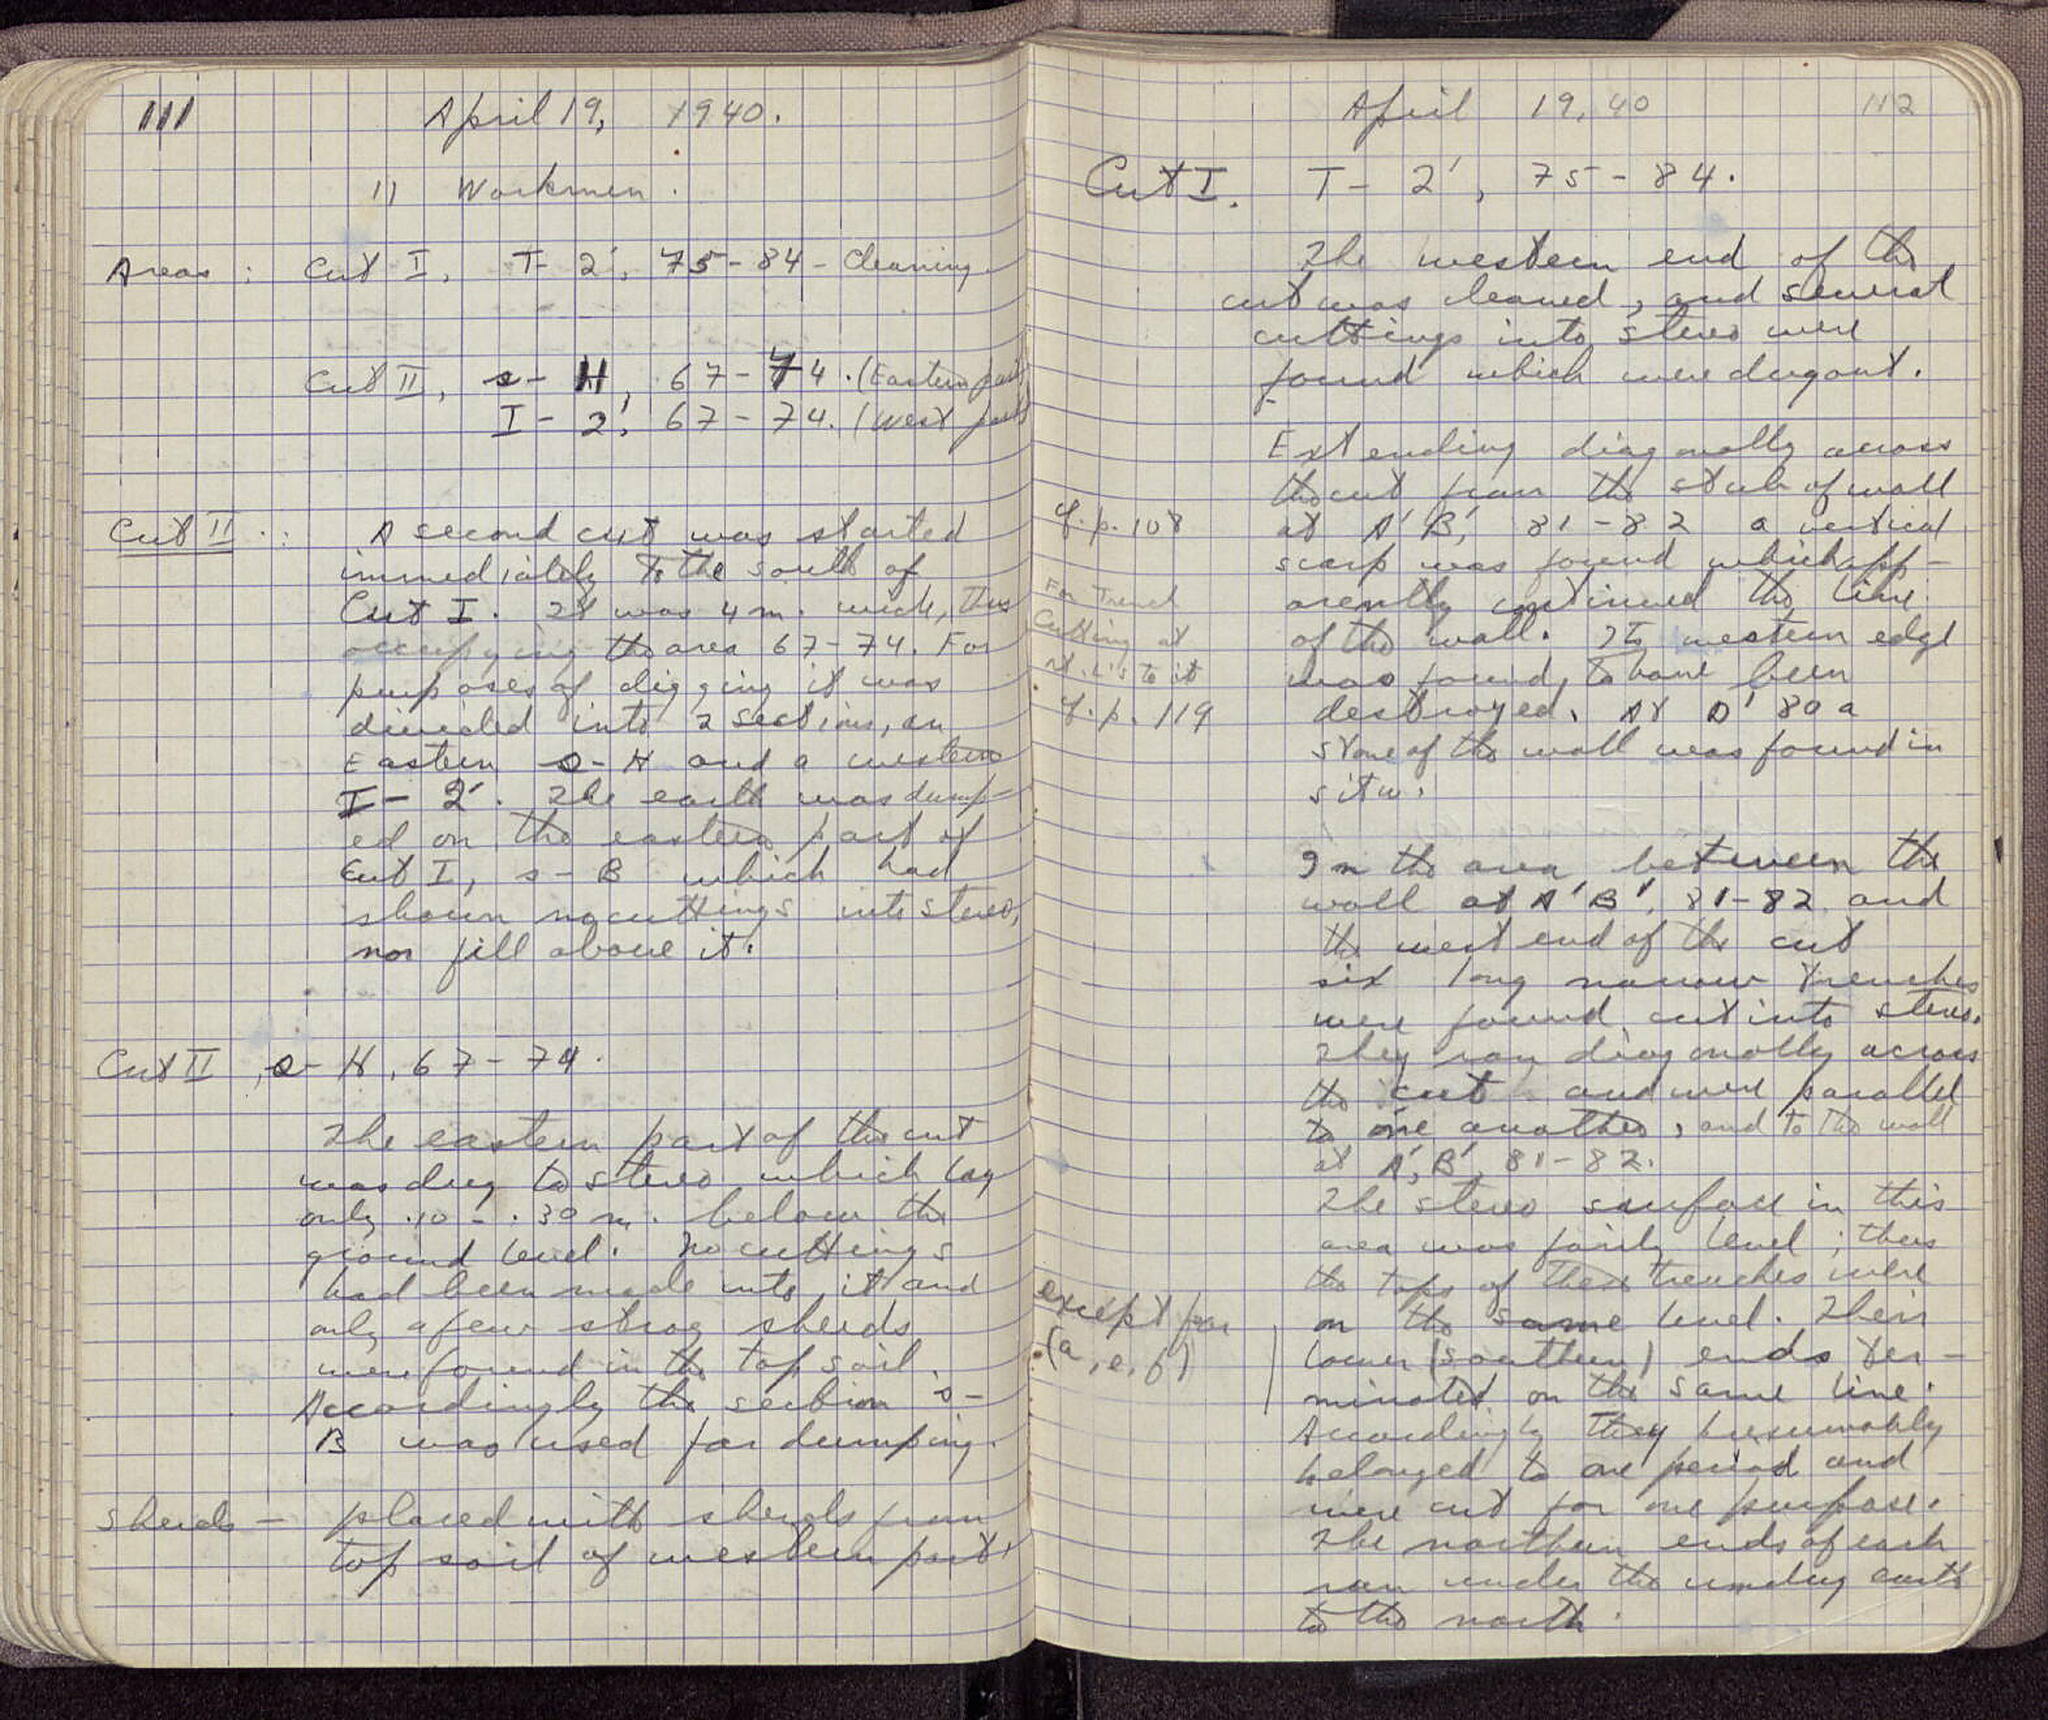 111 April 19, 1940.
11 Workmen.
Areas: Cut I, T-2', 75-84 - Cleaning.
Cut II, s-H, 67-74. (Eastern part)
I-2', 67-74. (West part)
Cut II.: A second cut was started
immediately to the south of
Cut I. It was 4 m. wide, thus
occupying the area 67-74. For
purposes of digging it was
divided into 2 sections, an
Eastern s-H and a western
I-2'. The earth was dump-
ed on the eastern part of
Cut I, s-B which had
shown no cuttings into stereo,
nor fill above it.
Cut II, s-H, 67-74.
The eastern part of the cut
was dug to stereo which lay
only .10-.30 m. below the
ground level. No cuttings
had been made into it and
only a few stray sherds
were found in the top soil.
Accordingly the section s-
B was used for dumping.
Sherds - placed with sherds from
top soil of western part.
April 19, 40 112
Cut I. T-2', 75-84.
The western end of the
cut was cleaned, and several
cuttings into stereo were
found which were dug out.
Extending diagonally across
the cut from the stub of wall
cf. p. 108 at A' B', 81-82 a vertical
scarp was found which app-
For Trench
Cutting at
rt. L's to it
cf. p. 119
arently continued the line
of the wall. Its western edge
was found to have been
destroyed. At D' 80 a
stone of the wall was found in
situ.
In the area between the
wall at A' B', 81-82 and
the west end of the cut
six long narrow trenches
were found cut into stereo.
They ran diagonally across
the cut and were parallel
to one another, and to the wall
at A', B', 81-82.
The stereo surface in this
area was fairly level; thus
the tops of these trenches were
on the same level. Their
except for
(a, e, f)
lower (southern) ends ter-
minated on the same line.
Accordingly they presumably
belonged to one period and
were cut for one purpose.
The northern ends of each
ran under the undug earth
to the north.